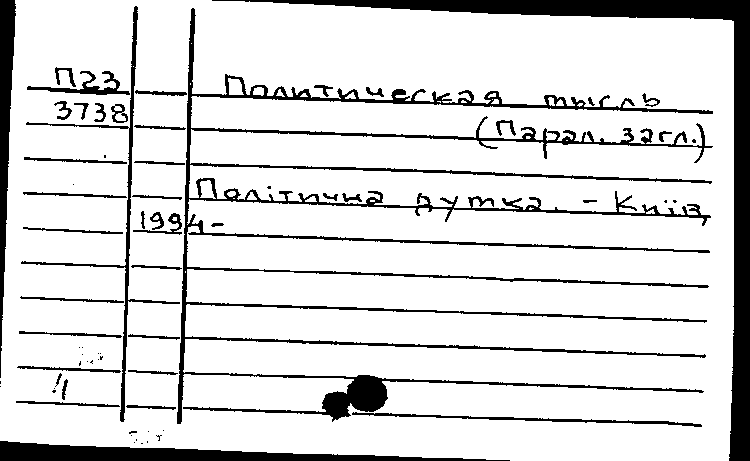 П23 Политическая мысль
3738 (Парал. загл.)
Політична думка. - Київ,
1994-
4